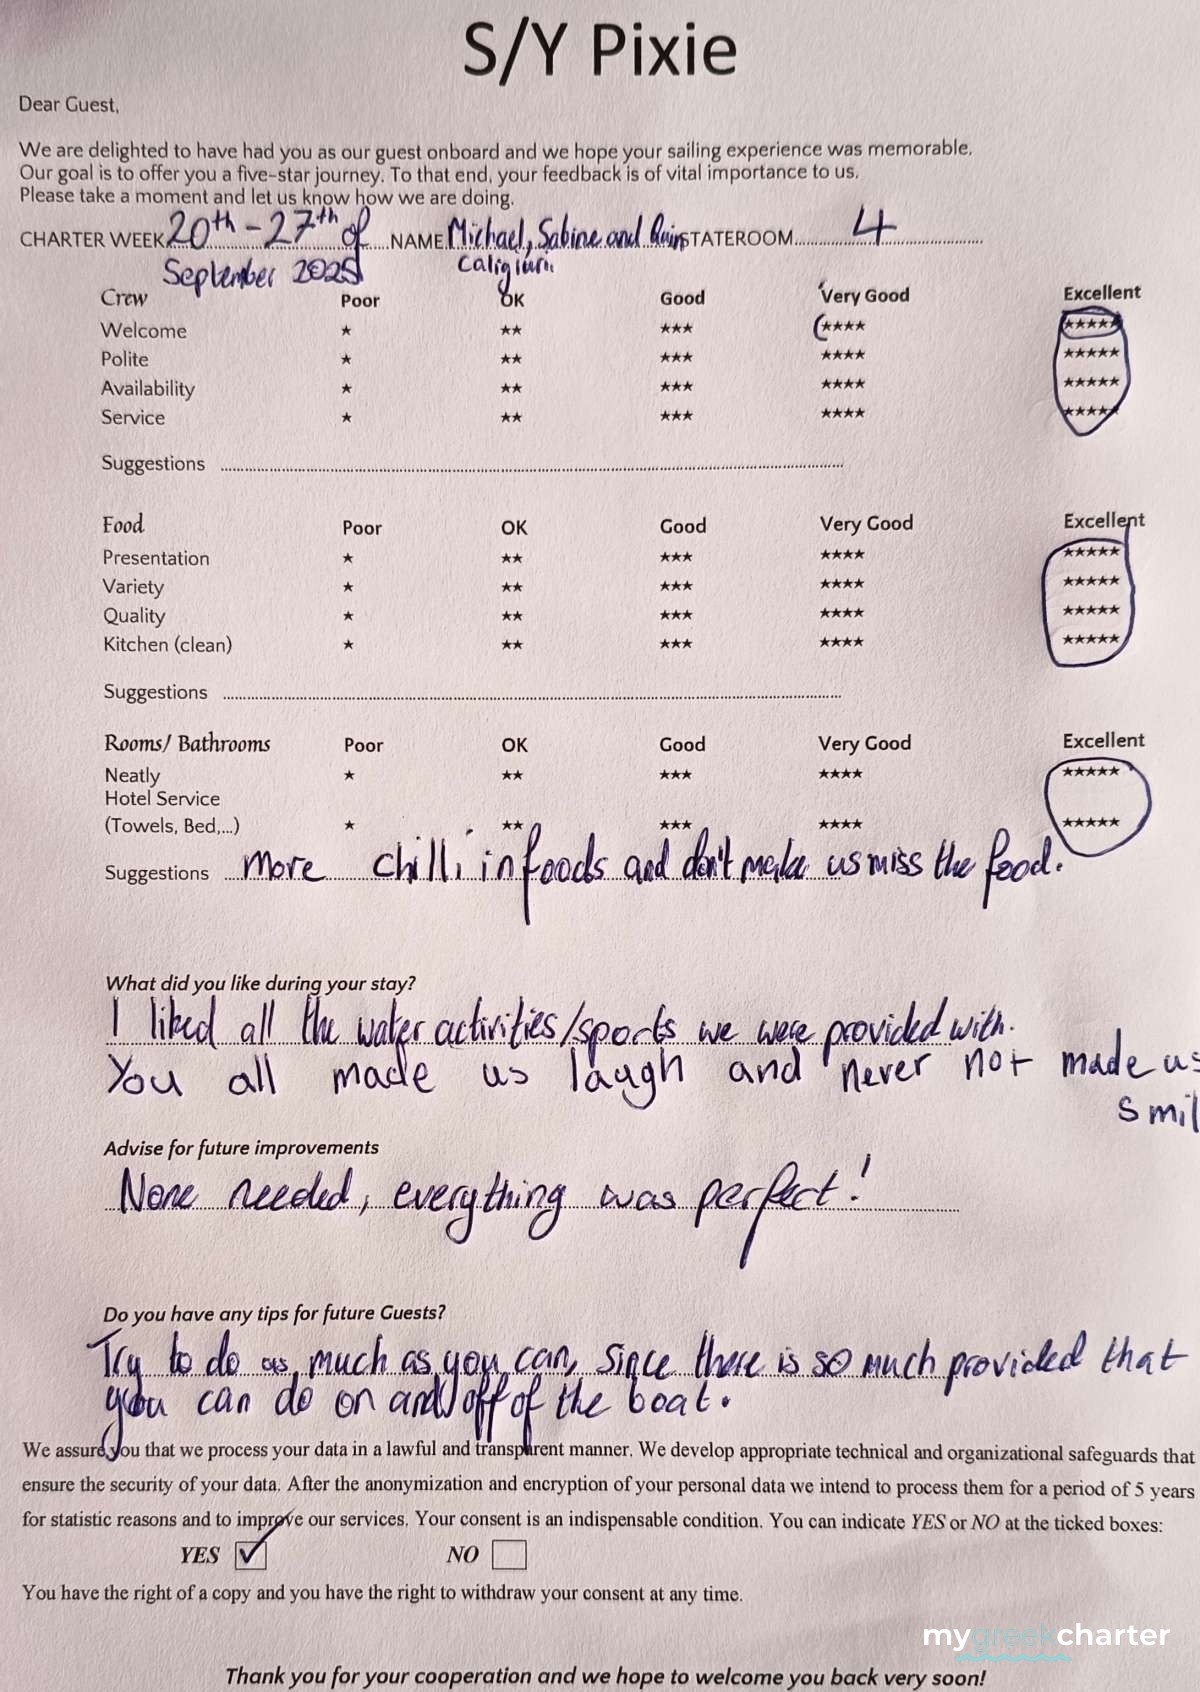 S/Y Pixie
Dear Guest,
We are delighted to have had you as our guest onboard and we hope your sailing experience was memorable.
Our goal is to offer you a five-star journey. To that end, your feedback is of vital importance to us.
Please take a moment and let us know how we are doing.
CHARTER WEEK 20th - 27th of NAME Michael, Sabine and STATEROOM 4
September 2025
Crew Poor OK Good Very Good Excellent
Welcome ★ ★★ ★★★ ★★★★ ★★★★★
Polite ★ ★★ ★★★ ★★★★ ★★★★★
Availability ★ ★★ ★★★ ★★★★ ★★★★★
Service ★ ★★ ★★★ ★★★★ ★★★★★
Suggestions
Food Poor OK Good Very Good Excellent
Presentation ★ ★★ ★★★ ★★★★ ★★★★★
Variety ★ ★★ ★★★ ★★★★ ★★★★★
Quality ★ ★★ ★★★ ★★★★ ★★★★★
Kitchen (clean) ★ ★★ ★★★ ★★★★ ★★★★★
Suggestions
Rooms/ Bathrooms Poor OK Good Very Good Excellent
Neatly ★ ★★ ★★★ ★★★★ ★★★★★
Hotel Service
(Towels, Bed,...) ★ ★★ ★★★ ★★★★ ★★★★★
Suggestions more chilli in foods and don't make us miss the food.
What did you like during your stay?
I liked all the water activities/sports we were provided with.
You all made us laugh and never not made us
smil
Advise for future improvements
None needed, everything was perfect!
Do you have any tips for future Guests?
Try to do as much as you can, since there is so much provided that
you can do on and/off of the boat.
We assure you that we process your data in a lawful and transparent manner. We develop appropriate technical and organizational safeguards that
ensure the security of your data. After the anonymization and encryption of your personal data we intend to process them for a period of 5 years
for statistic reasons and to improve our services. Your consent is an indispensable condition. You can indicate YES or NO at the ticked boxes:
YES NO
You have the right of a copy and you have the right to withdraw your consent at any time.
mygreekcharter
Thank you for your cooperation and we hope to welcome you back very soon!